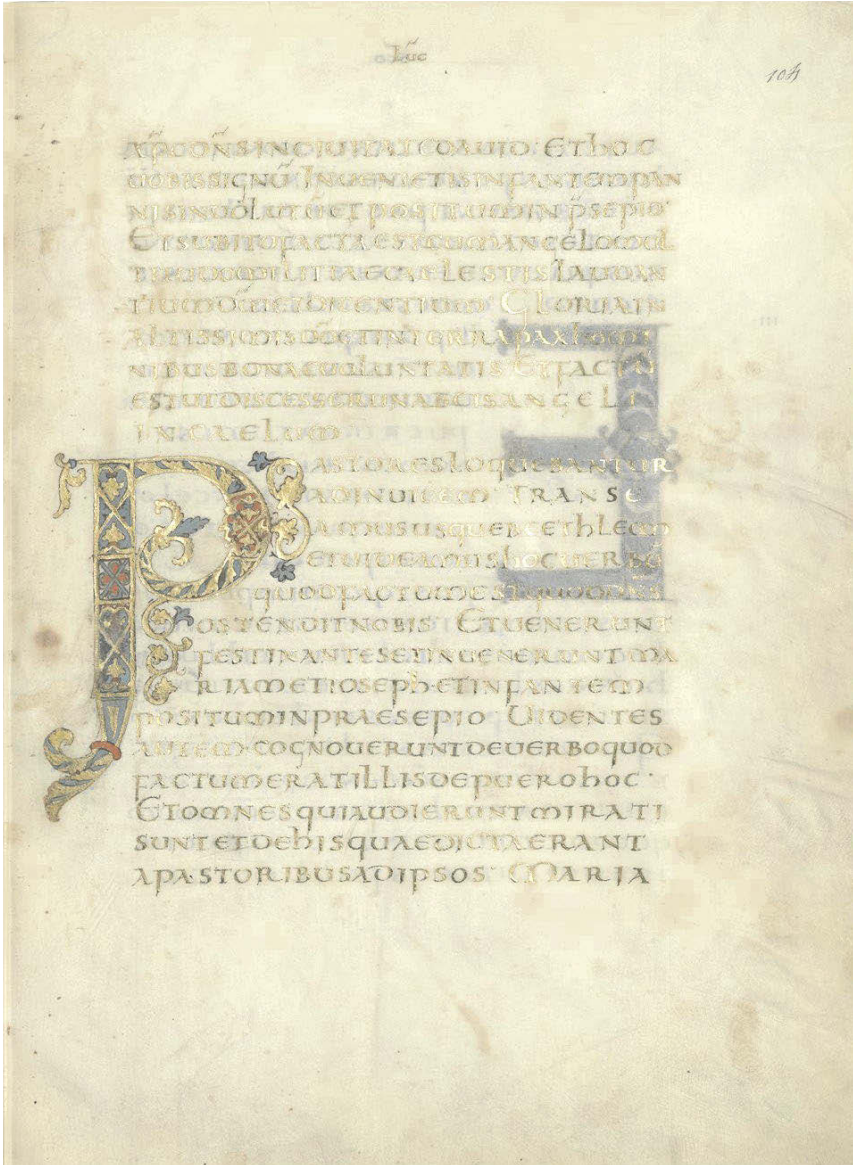 Luc
104
XPS DNS IN CIUITATE DAUID· ET hOC
UOBIS SIGNŪ INUENIETIS INFANTEM PAN
NIS INUOLUTŪ ET POSITUM IN PSEPIO·
ET SUBITO FACTA EST CUM ANGELO MUL
TITUDO MILITIAE CAELESTIS LAUDAN
TIUM DM ET DICENTIUM GLORIA IN
ALTISSIMIS DO ET IN TERRA PAX hOMI
NIBUS BONAE UOLUNTATIS ET FACTŪ
EST UT DISCESSERUN AB EIS ANGELI
IN CAELUM
PASTORES LOQUEBANTUR
AD INUICEM TRANSE
AMUS USQUE BETHLEEM
ET UIDEAMUS hOC UERBŪ
QUOD FACTUM EST QUOD DNS
OSTENDIT NOBIS ET UENERUNT
FESTINANTES ET INUENERUNT MA
RIAM ET IOSEPh ET INFANTEM
POSITUM IN PRAESEPIO UIDENTES
AUTEM COGNOUERUNT DE UERBO QUOD
FACTUM ERAT ILLIS DE PUERO hOC·
ET OMNES QUI AUDIERUNT MIRATI
SUNT ET DE hIS QUAE DICTA ERANT
A PASTORIBUS AD IPSOS· MARIA